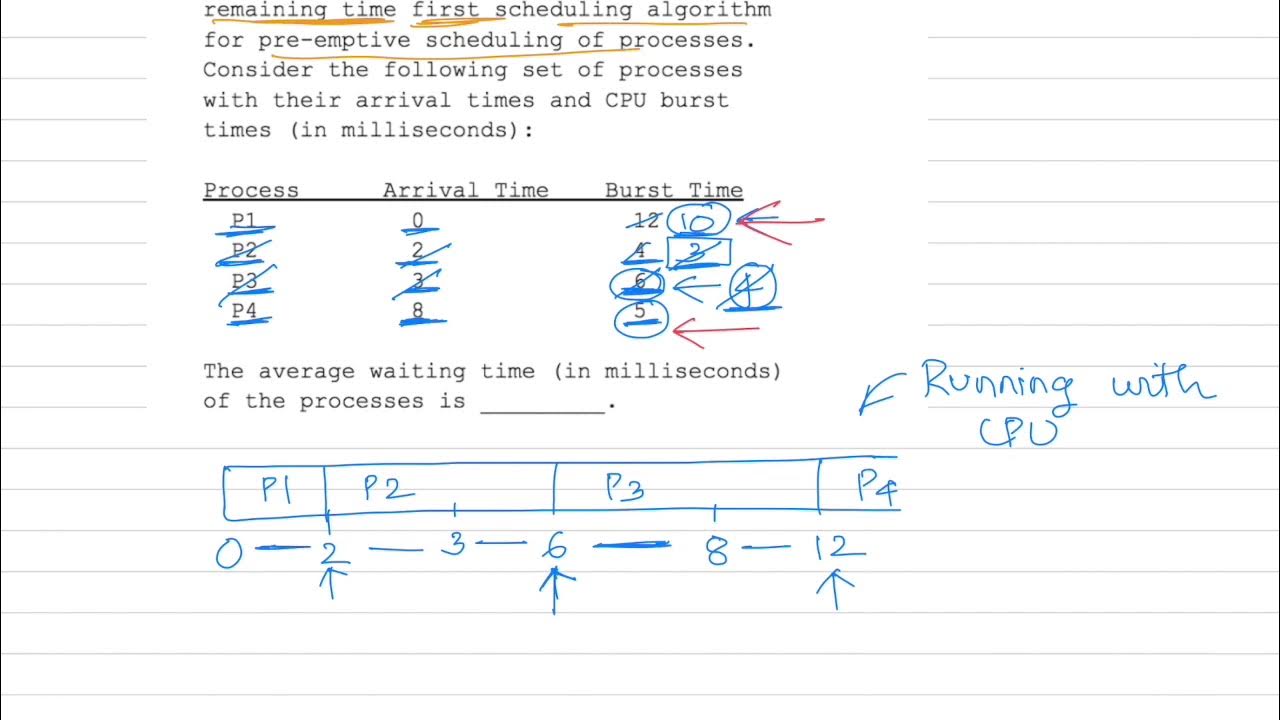 remaining time first scheduling algorithm
for pre-emptive scheduling of processes.
Consider the following set of processes
with their arrival times and CPU burst
times (in milliseconds):
Process Arrival Time Burst Time
P1 0 12 10
P2 2 4 3
P3 3 6 4
P4 8 5
The average waiting time (in milliseconds)
of the processes is ________.
Running with
CPU
P1 P2 P3 P4
0 — 2 — 3 — 6 — 8 — 12